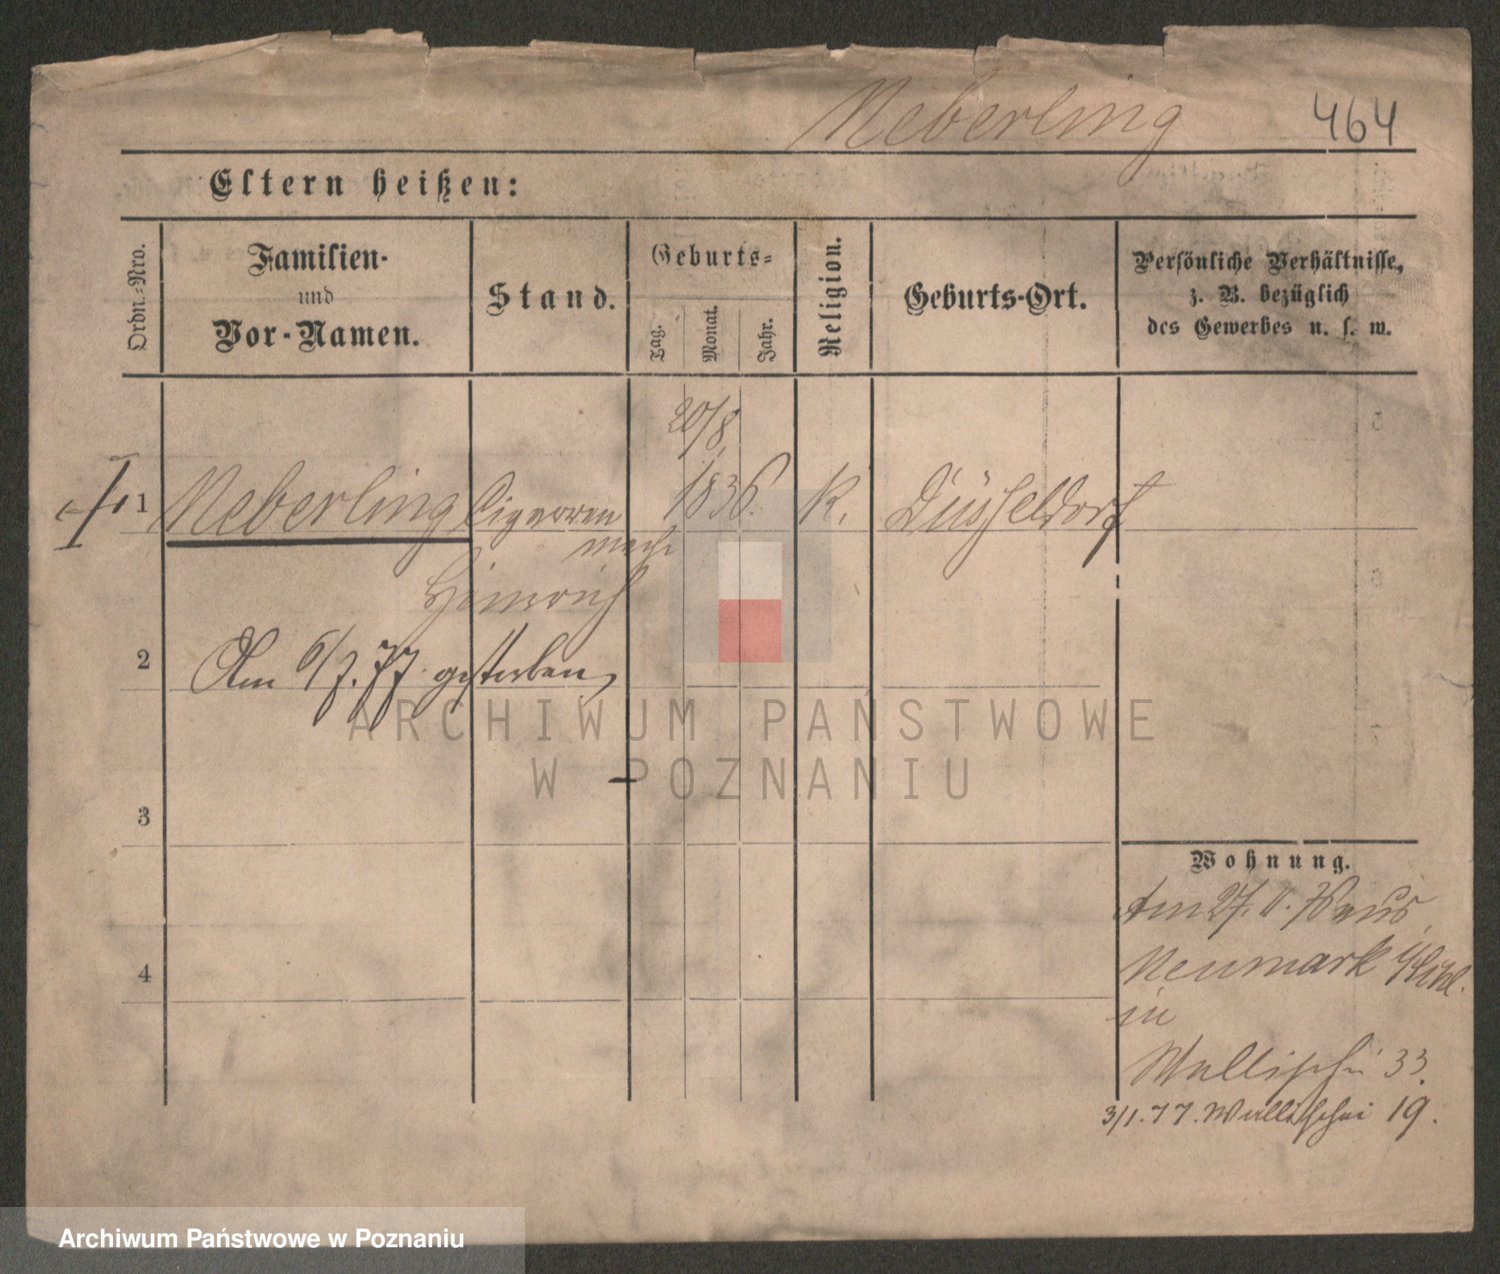 Neberling 464
Eltern heißen:
Ordn.-Nro.
Familien-
und
Vor-Namen.
Stand.
Geburts-
Tag.
Monat.
Jahr.
Religion.
Geburts-Ort.
Persönliche Verhältnisse,
z. B. bezüglich
des Gewerbes u. s. w.
20/8.
1 Neberling Cigarren 1836. K. Düsseldorf
mach.
Heinrich
2 Am 6/7. 77 gestorben,
3
4
Wohnung.
Am 27. 76 aus
Neumark
in
Wallischei 33.
3/1. 77. Wallischei 19.
ARCHIWUM PAŃSTWOWE
W POZNANIU
Archiwum Państwowe w Poznaniu